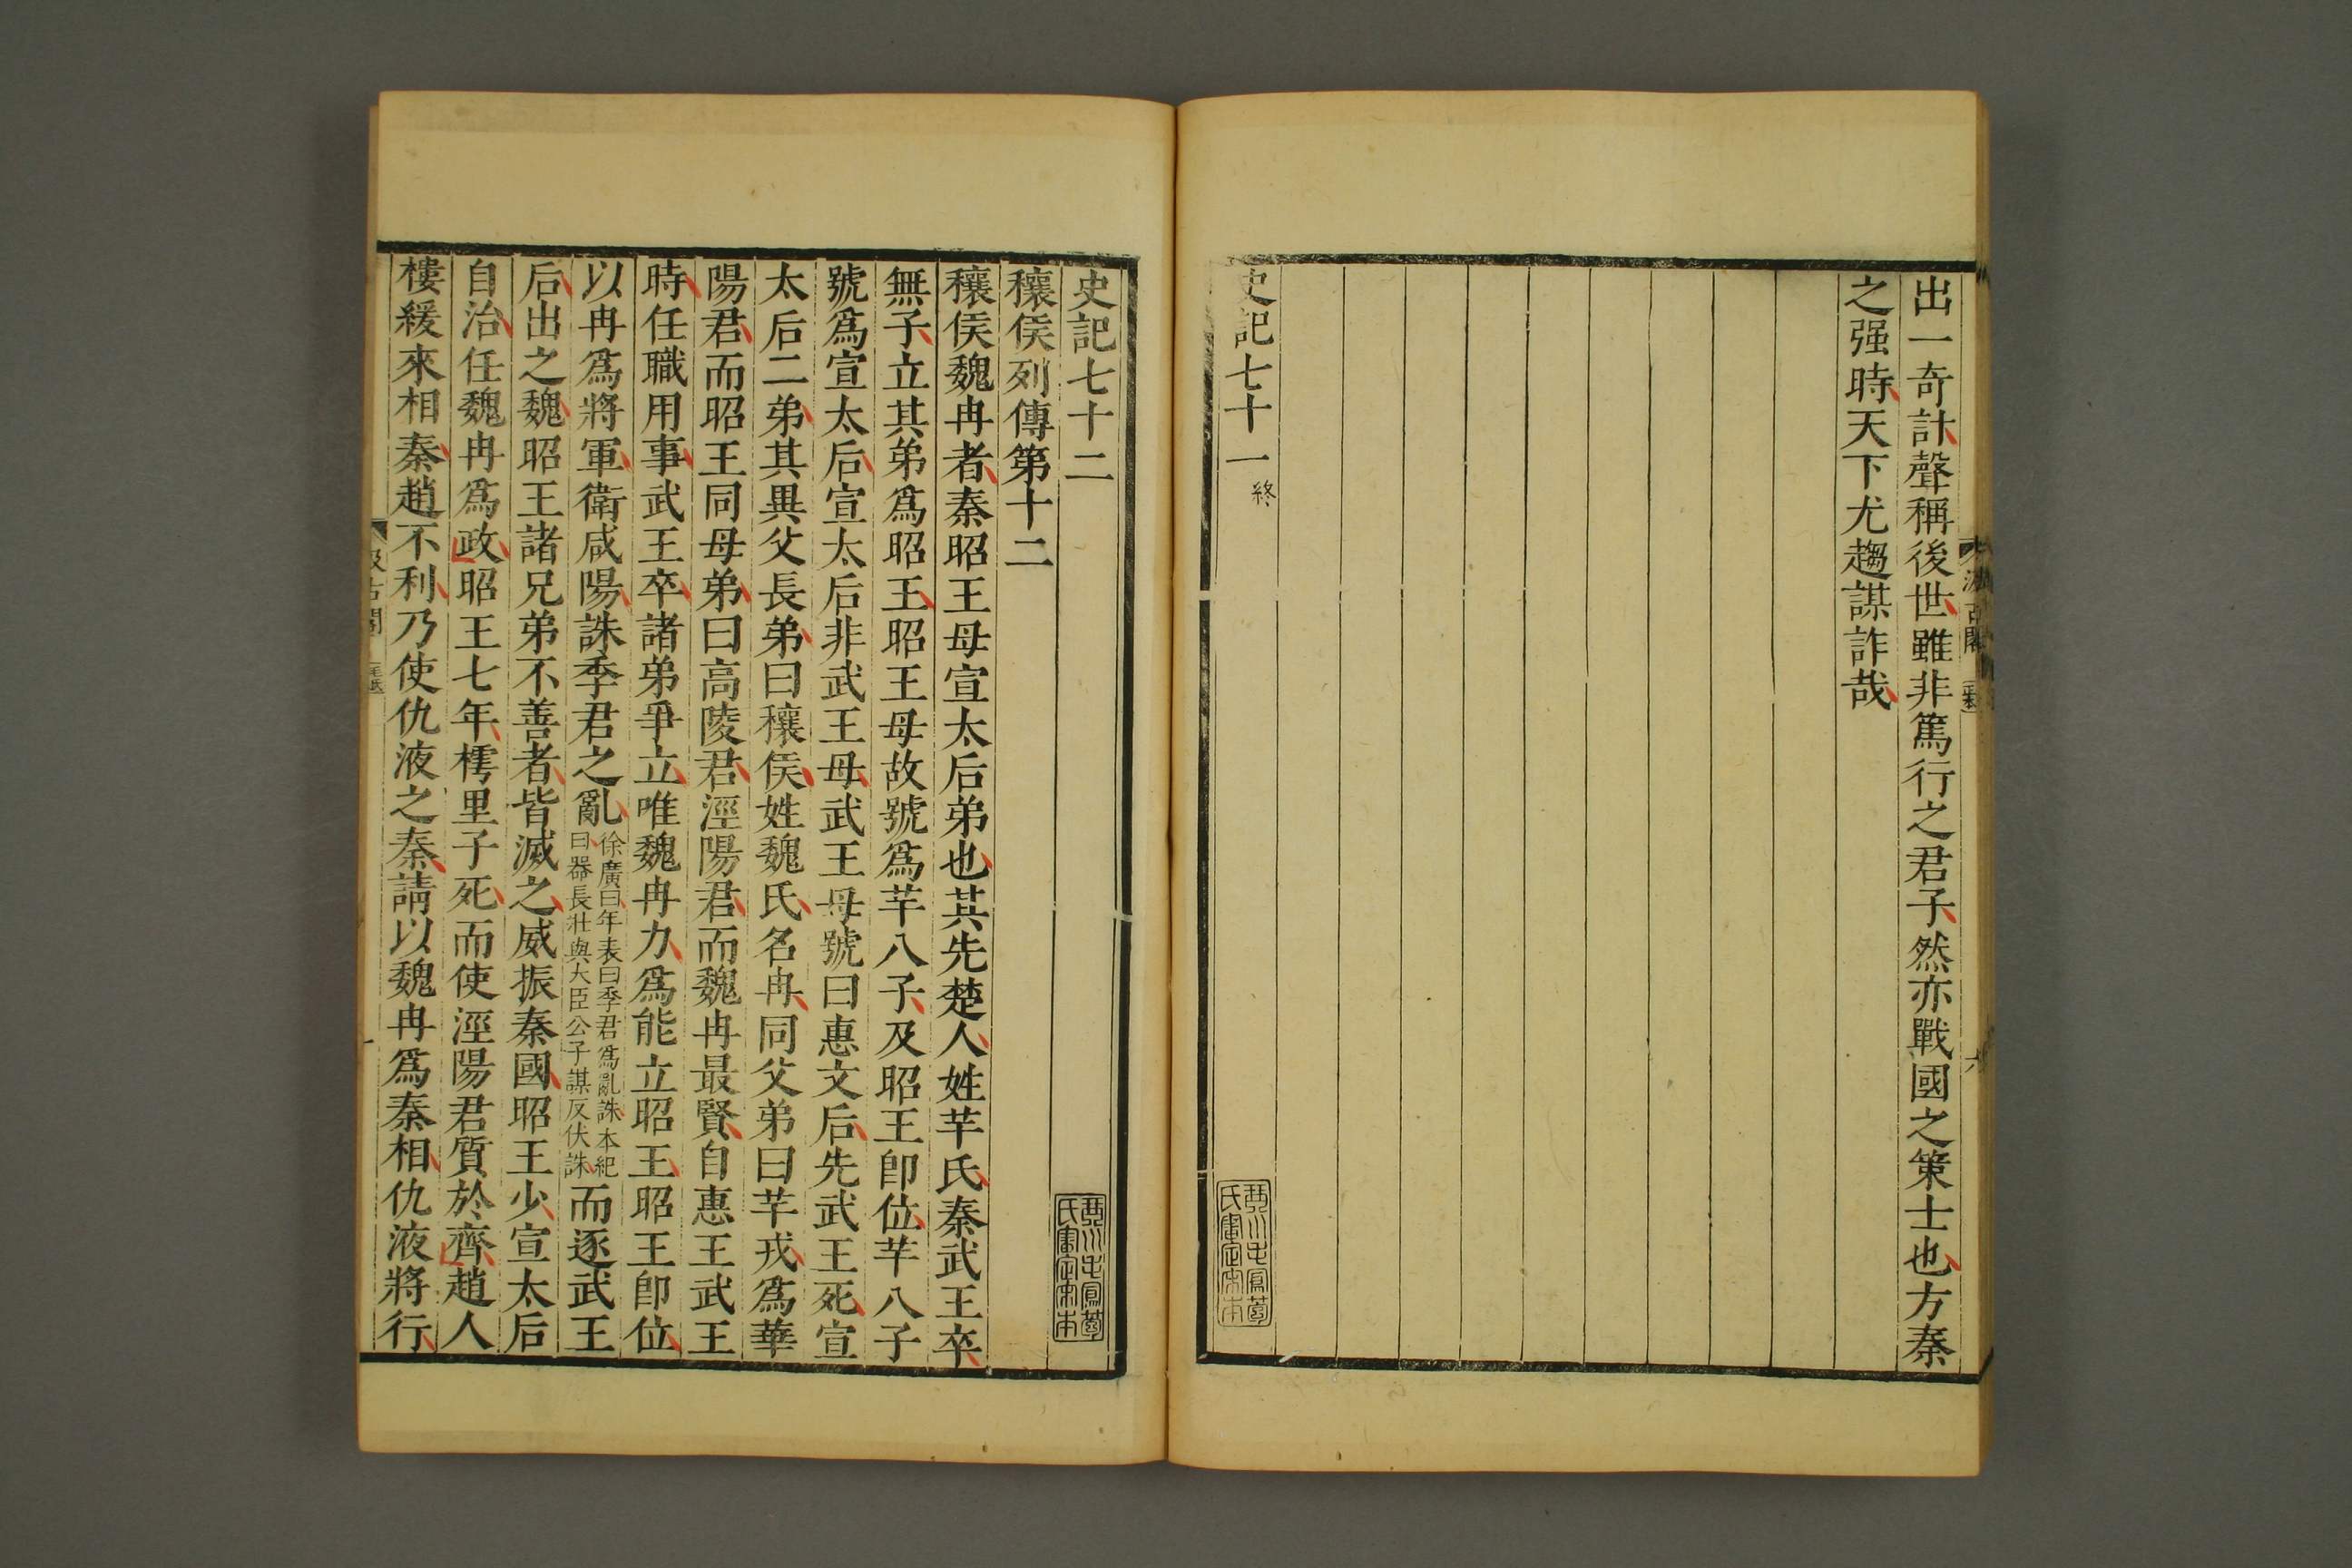 出一奇計聲稱後世雖非篤行之君子然亦戰國之策士也方秦
之强時天下尤趨謀詐哉
史記七十一 終
史記七十二
穰侯列傳第十二
穰侯魏冉者秦昭王母宣太后弟也其先楚人姓羋氏秦武王卒
無子立其弟爲昭王昭王母故號爲羋八子及昭王卽位羋八子
號爲宣太后宣太后非武王母武王母號曰惠文后先武王死宣
太后二弟其異父長弟曰穰侯姓魏氏名冉同父弟曰羋戎爲華
陽君而昭王同母弟曰高陵君涇陽君而魏冉最賢自惠王武王
時任職用事武王卒諸弟爭立唯魏冉力爲能立昭王昭王卽位
以冉爲將軍衛咸陽誅季君之亂
徐廣曰年表曰季君爲亂誅本紀
曰器長壯與大臣公子謀反伏誅
而逐武王
后出之魏昭王諸兄弟不善者皆滅之威振秦國昭王少宣太后
自治任魏冉爲政昭王七年樗里子死而使涇陽君質於齊趙人
樓緩來相秦趙不利乃使仇液之秦請以魏冉爲秦相仇液將行